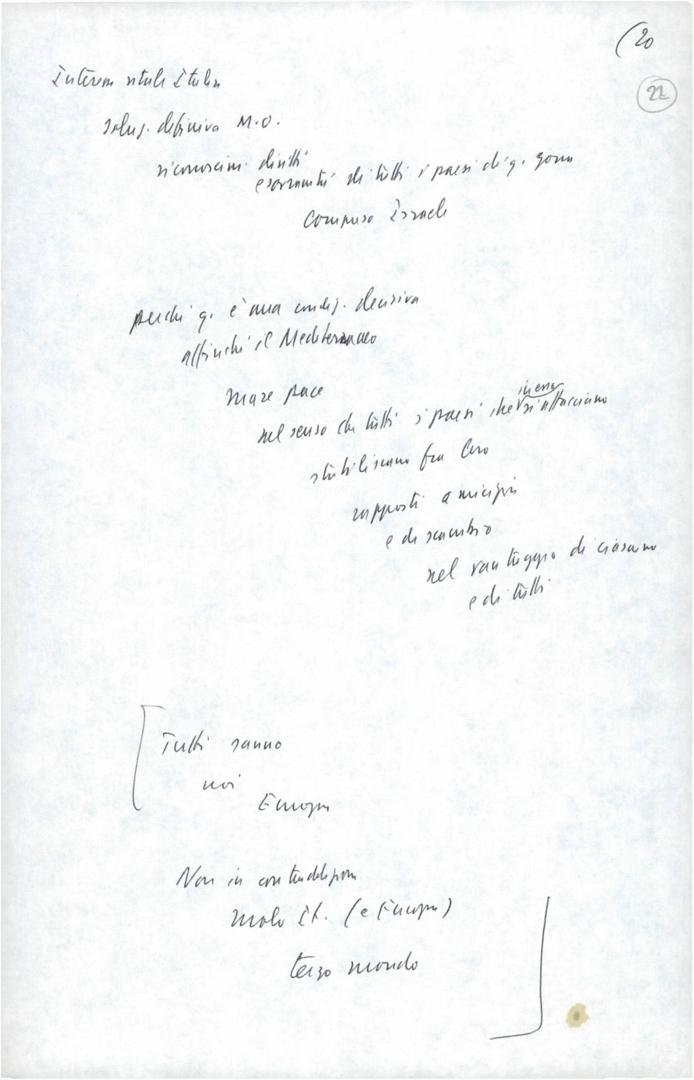 (20
22
Interesse vitale Italia
soluz. definiva M.O.
riconoscim. diritti
e sovranità di tutti i paesi di q. zona
compreso Israele
perché q. è una condiz. decisiva
affinché il Mediterraneo
mare pace
nel senso che tutti i paesi che in esso si affacciano
stabiliscano fra loro
rapporti amicizia
e di scambio
nel vantaggio di ciascuno
e di tutti
Tutti sanno
noi
Europa
Non in
ruolo It. (e Europa)
terzo mondo